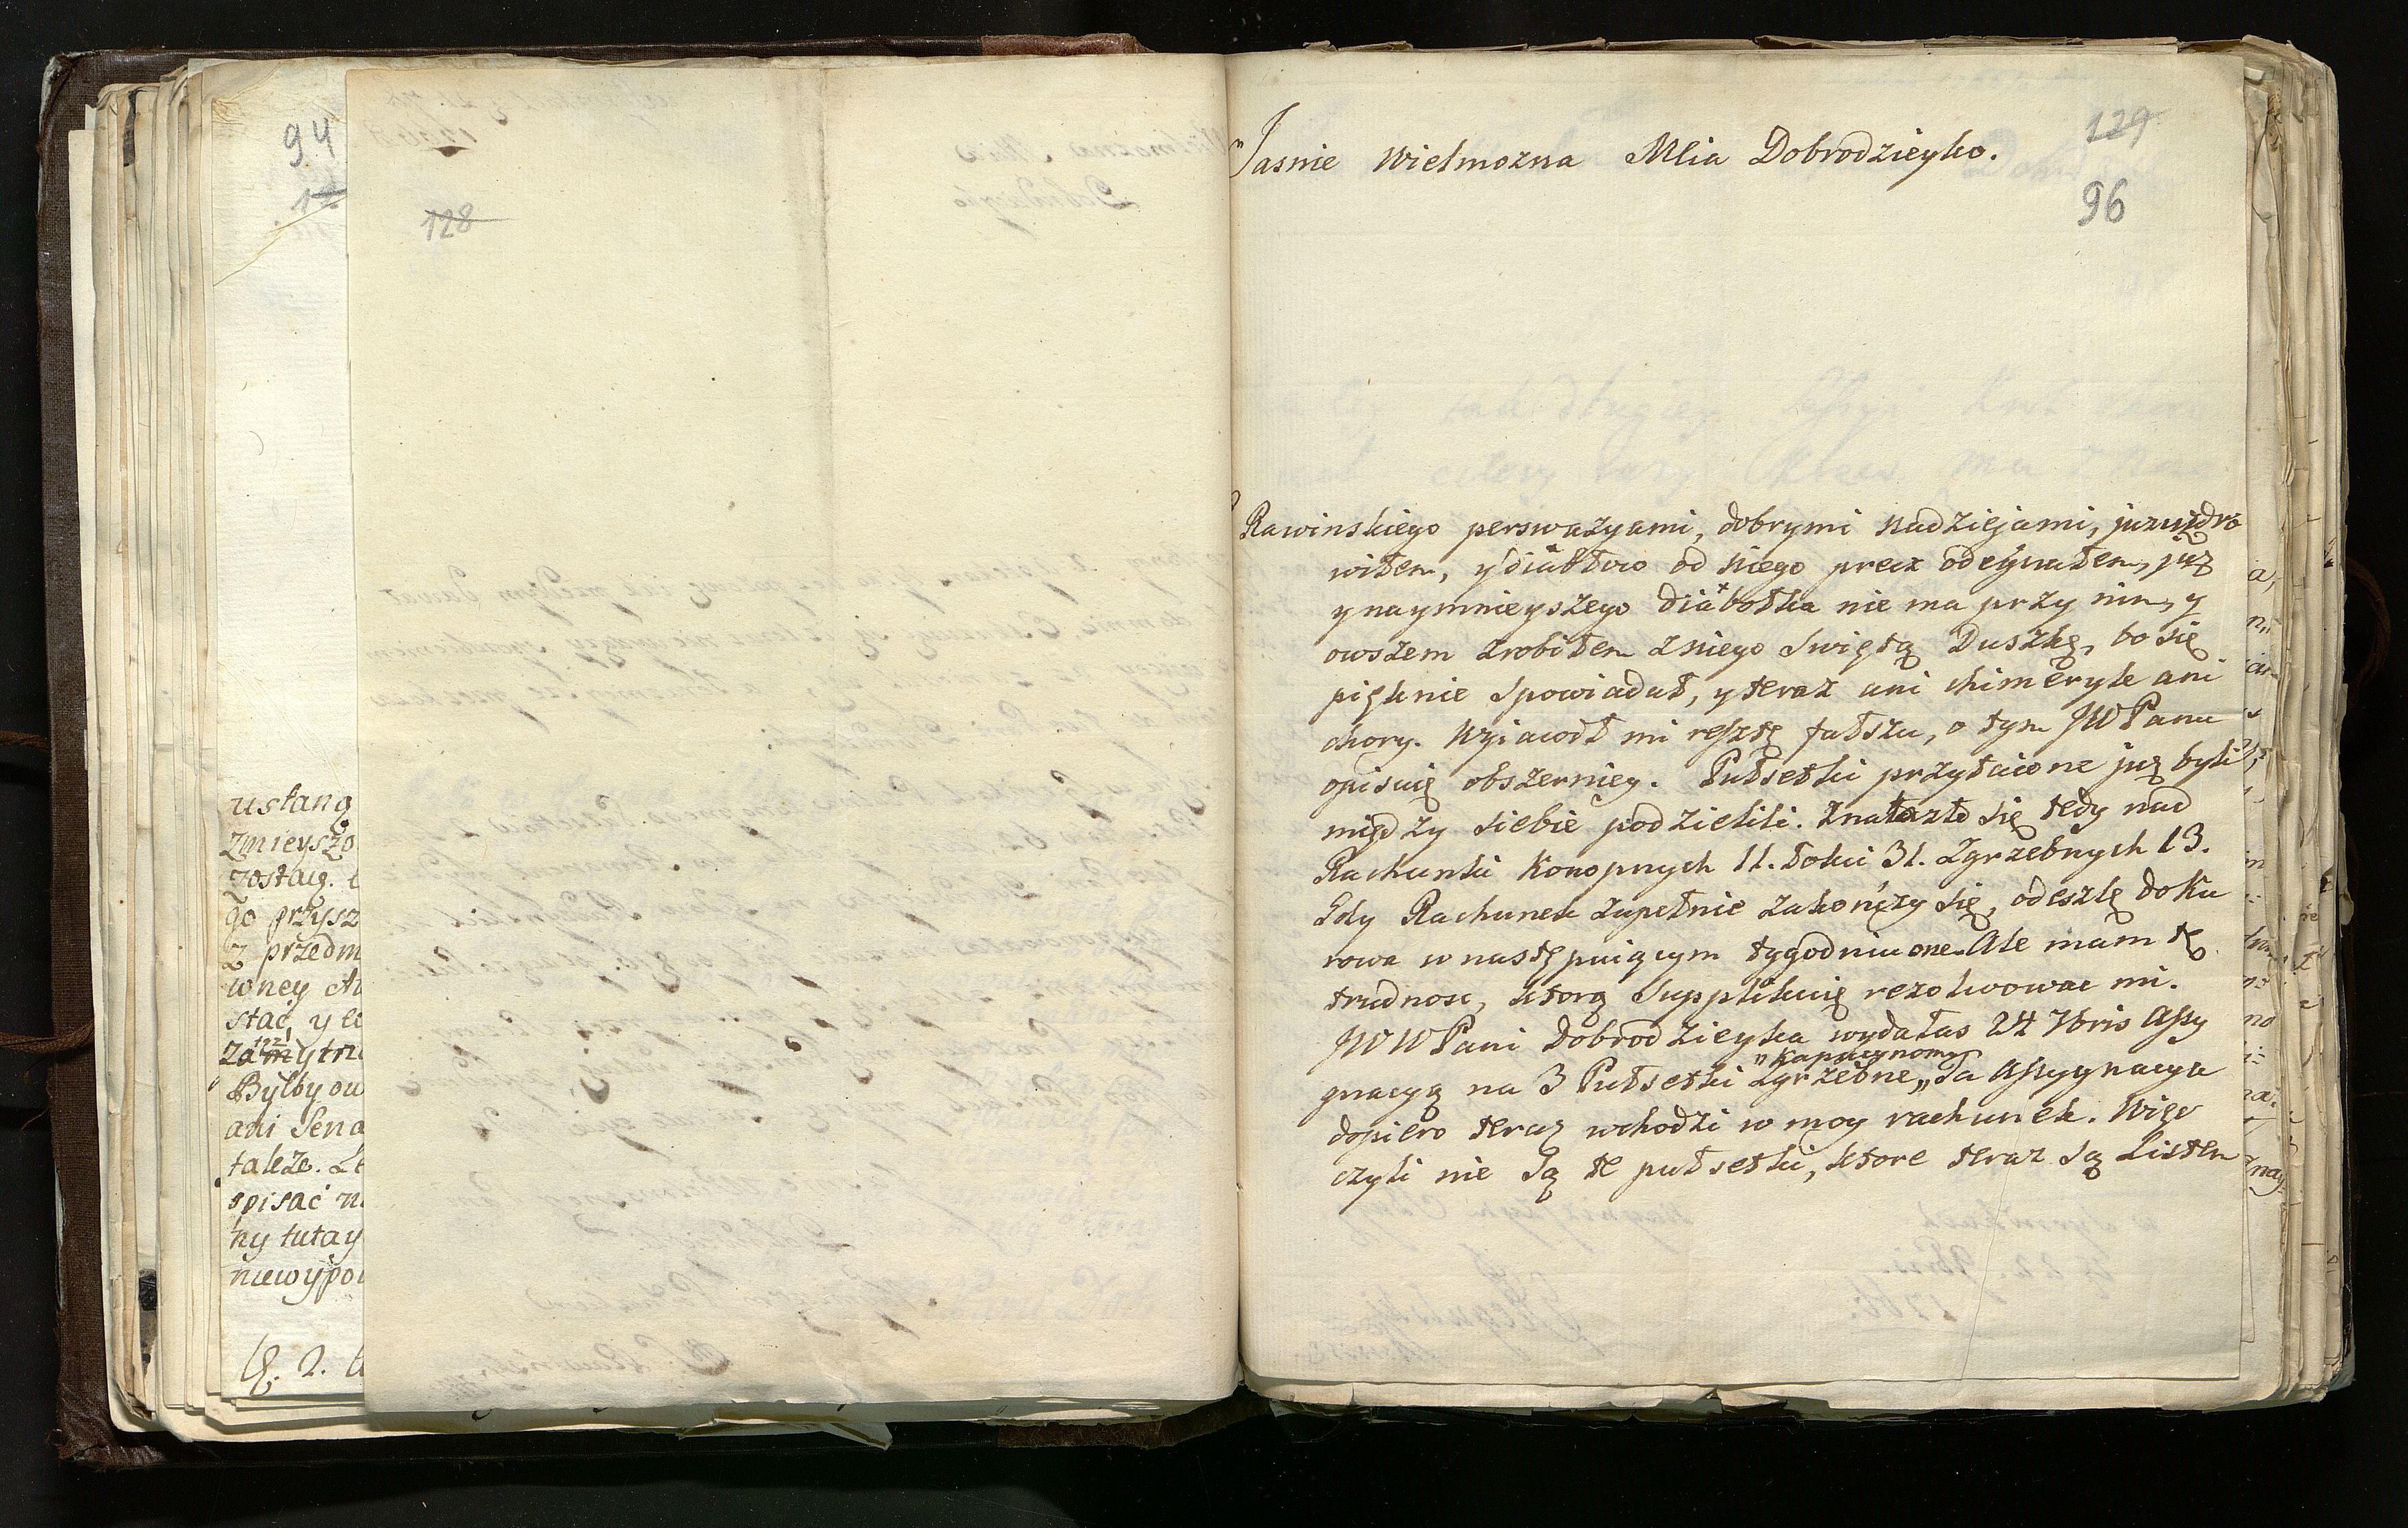 94
128
ustang
zmieyszo
zostaig.
go przysz
z przedm
wney
stać, y
Bylby ou
ani Sena
taleze.
spisać
hy tutay
niewypow
129
96
Jasnie Wielmozna Mlia Dobrodzieyko.
Rawinskiego perswazyami, dobrymi nadziejami, juz uzdro
wiłem, y diabłow od niego precz odegnałem, już
y naymnieyszego diabołka nie ma przy nim, y
owszem zrobiłem z niego Swiętą Duszkę, bo się
pięknie spowiadał, y teraz ani chimeryk ani
chory. Wyiawił mi resztę fałszu, o tym JW Panu
opisuię obszerniey. Pułsetki przytaione już byli
między siebie podzielili. Znalazło się tedy nad
Rachunki Konopnych 11. łokci 31. Zgrzebnych 13.
Gdy Rachunek zupełnie zakończy się, odeszlę do Ku
rowa w następuiącym tygodniu one. Ale mam tę
trudnosc, ktorą Supplikuię rezolwowac mi.
JWW Pani Dobrodzieyka wydałas 24 7bris Assy
gnacyą na 3 Pułsetki Zgrzebne „Kapucynom„ Ta Assygnacya
dopiero teraz wchodzi w moy rachunek. Więc
czyli nie są te pułsetki, ktore teraz są Listem